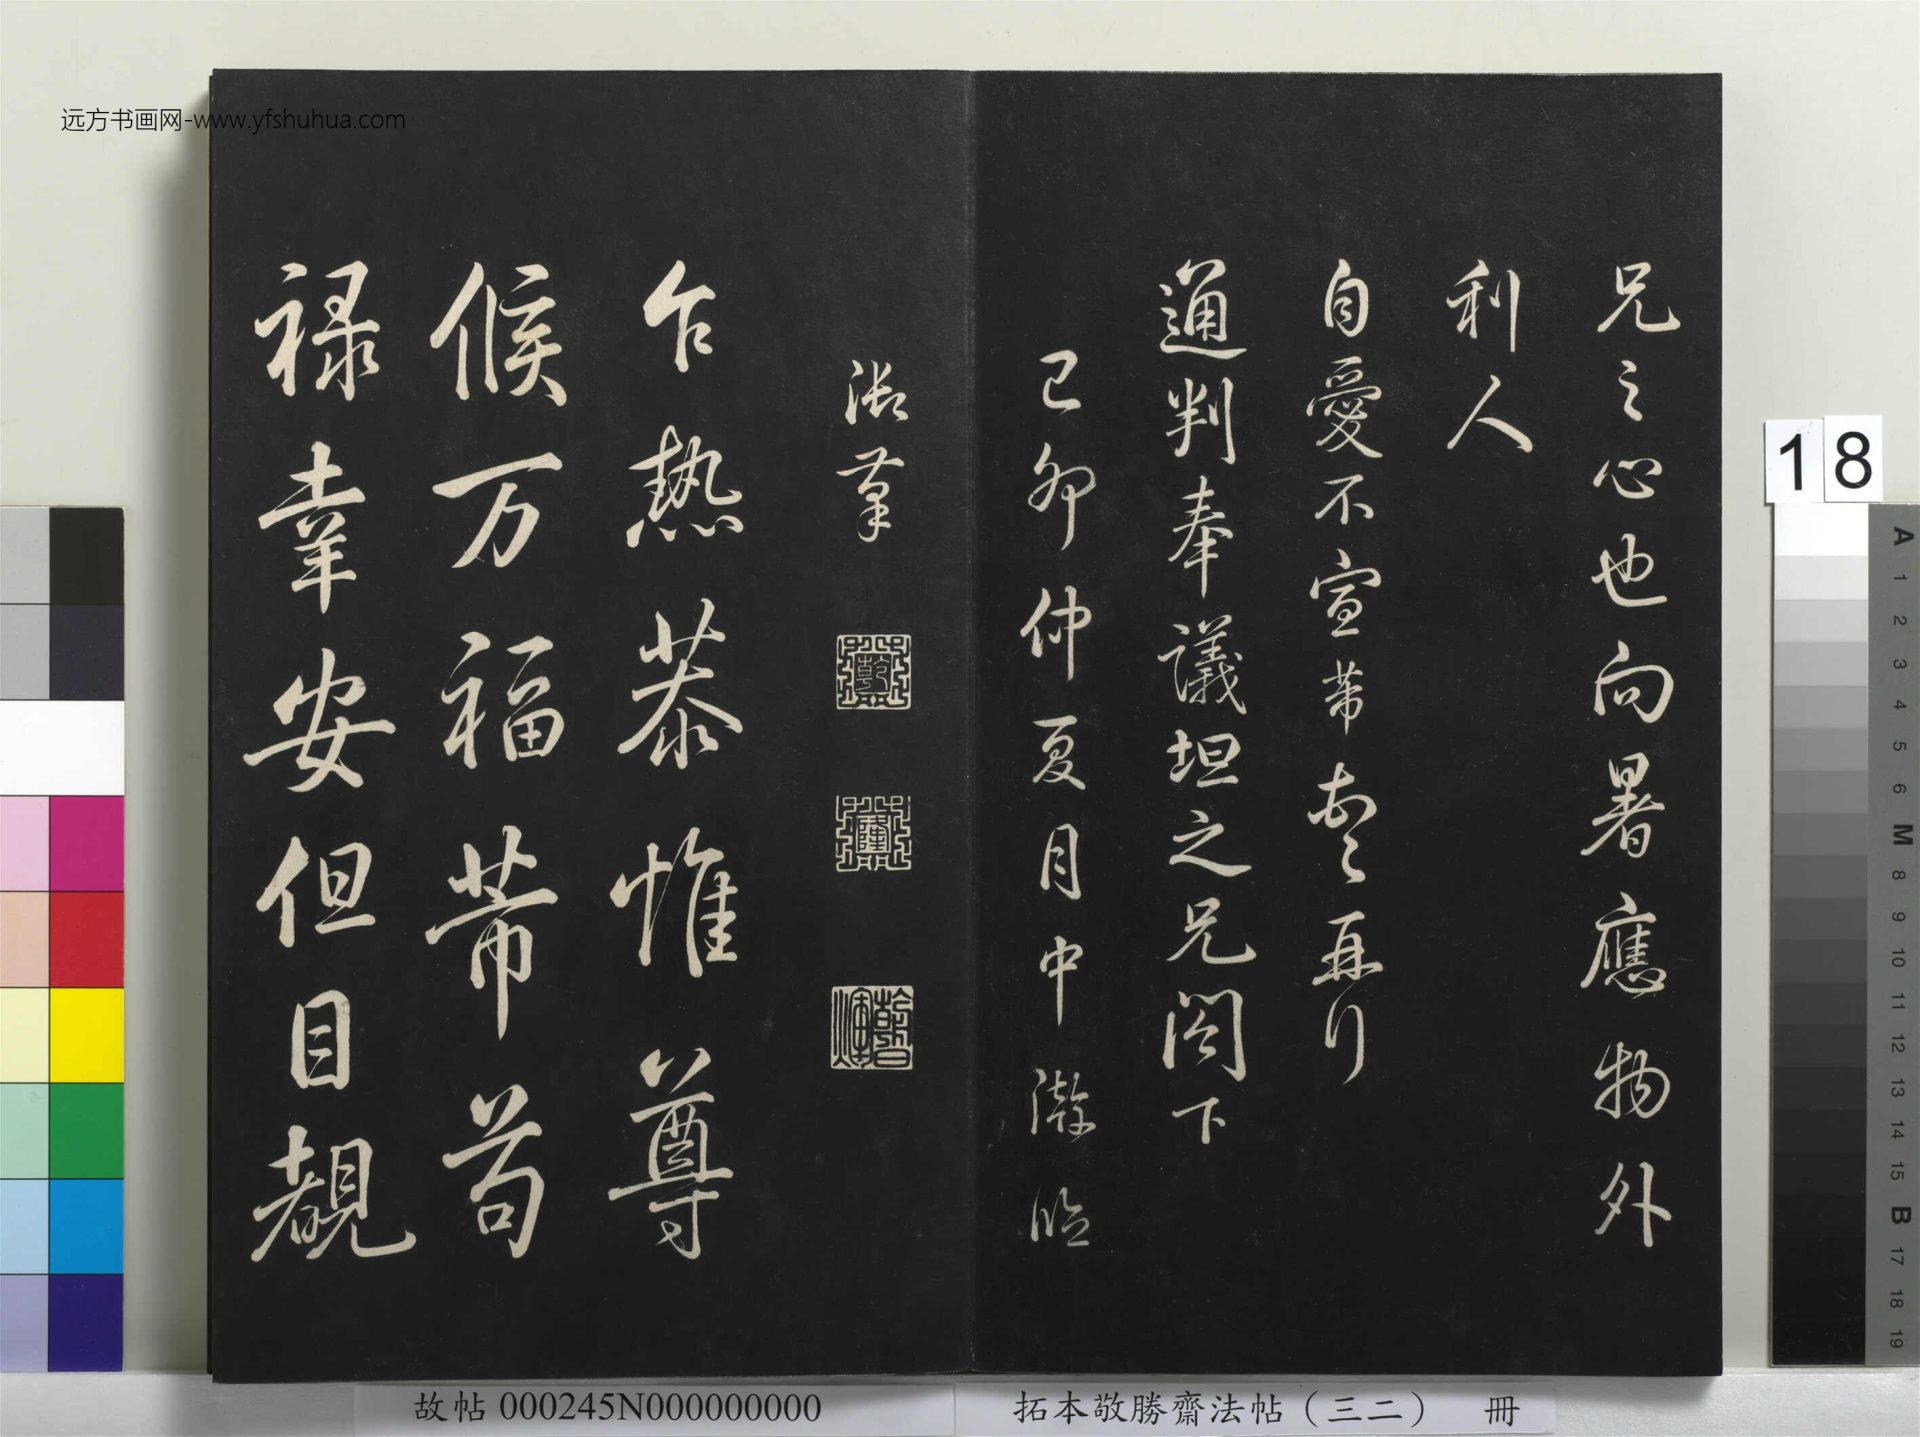 远方书画网-www.yfshuhua.com
兄之心也向暑應物外
利人
自愛不宣芾再拜
通判奉議坦之兄閤下
己卯仲夏月中澣臨
筆
乾
隆
乍熱恭惟尊
候万福芾苟
禄幸安但目覩
18
A
1
2
3
4
5
6
M
8
9
10
11
12
13
14
15
B
17
18
19
故帖 000245N000000000
拓本敬勝齋法帖（三二） 冊